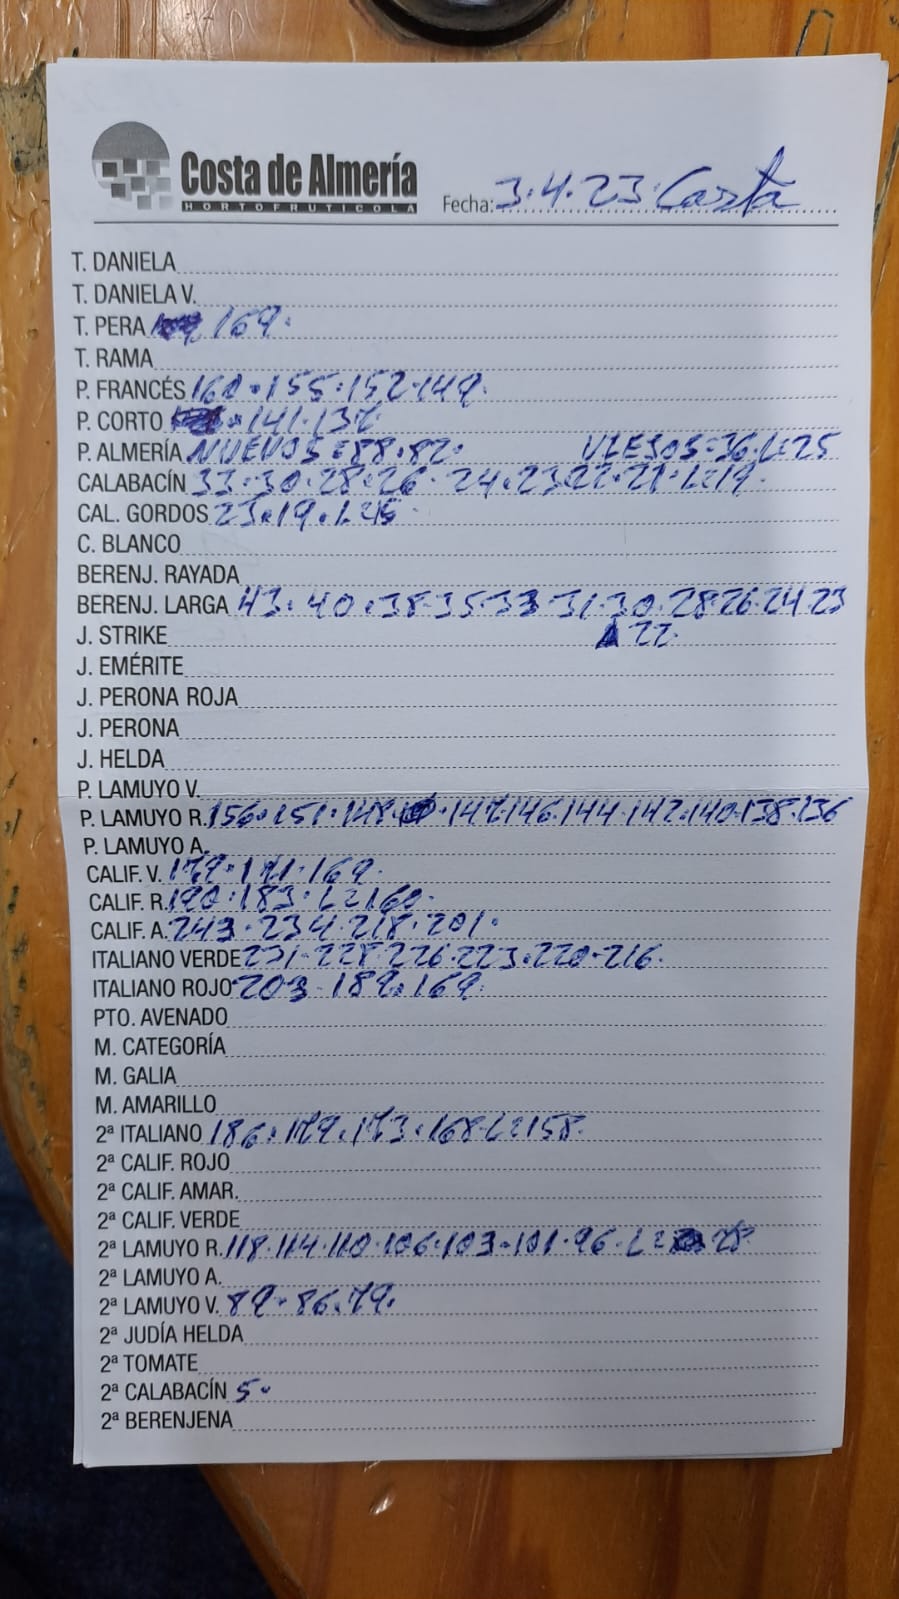 Costa de Almería
HORTOFRUTICOLA
Fecha: 3.4.23. Costa
T. DANIELA
T. DANIELA V.
T. PERA 169.
T. RAMA
P. FRANCÉS 160.155.152.149.
P. CORTO .141.137
P. ALMERÍA NUEVOS=88.82. VIEJOS=36.L=25
CALABACÍN 33.30.28.26.24.23.22.21.L=19.
CAL. GORDOS 23.19.L=15.
C. BLANCO
BERENJ. RAYADA
BERENJ. LARGA 43.40.38.35.33.31.30.28.26.24.23
J. STRIKE 22.
J. EMÉRITE
J. PERONA ROJA
J. PERONA
J. HELDA
P. LAMUYO V.
P. LAMUYO R. 156.151.148.147.146.144.142.140.138.136
P. LAMUYO A.
CALIF. V. 179.171.169.
CALIF. R. 190.183.L=160.
CALIF. A. 243.234.218.201.
ITALIANO VERDE 231.228.226.223.220.216.
ITALIANO ROJO 203.189.169.
PTO. AVENADO
M. CATEGORÍA
M. GALIA
M. AMARILLO
2ª ITALIANO 186.179.173.168.L=158.
2ª CALIF. ROJO
2ª CALIF. AMAR.
2ª CALIF. VERDE
2ª LAMUYO R. 118.114.110.106.103.101.96.L=
2ª LAMUYO A.
2ª LAMUYO V. 89.86.79.
2ª JUDÍA HELDA
2ª TOMATE
2ª CALABACÍN 5.
2ª BERENJENA